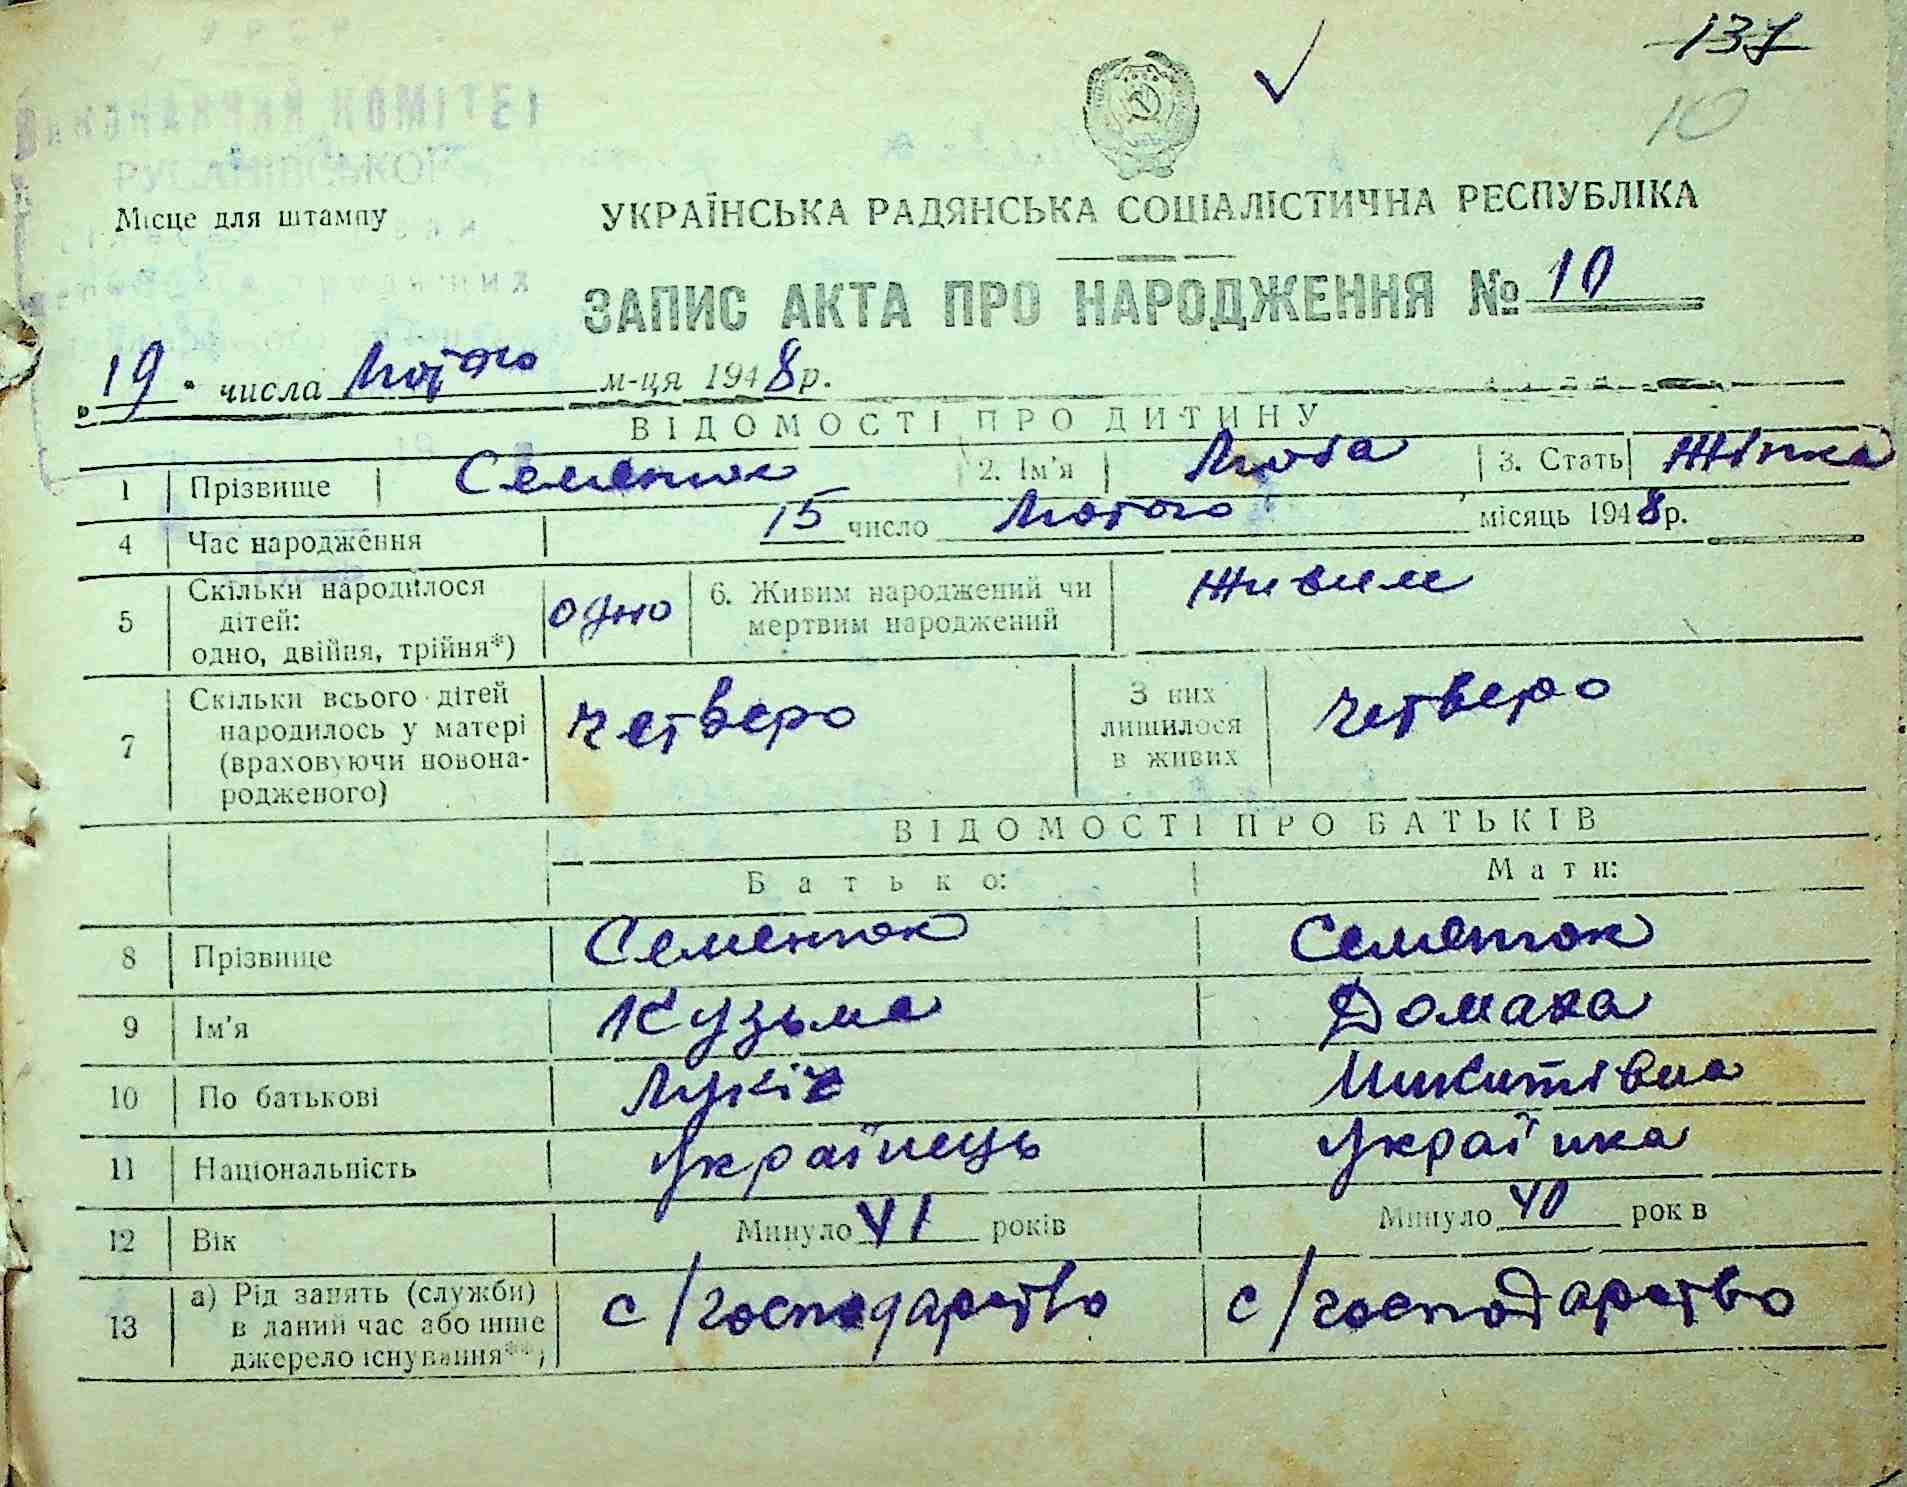 137
10
РУСАНІВСЬКОЇ
Місце для штампу
УКРАЇНСЬКА РАДЯНСЬКА СОЦІАЛІСТИЧНА РЕСПУБЛІКА
ЗАПИС АКТА ПРО НАРОДЖЕННЯ № 10
19 числа Лютого м-ця 1948 р.
ВІДОМОСТІ ПРО ДИТИНУ
1 Прізвище Семенюк 2. Ім'я Люба 3. Стать Жінка
4 Час народження 15 число Лютого місяць 1948 р.
5 Скільки народилося дітей: одно, двійня, трійня*) одно 6. Живим народжений чи мертвим народжений Живим
7 Скільки всього дітей народилось у матері (враховуючи новонародженого) четверо З них лишилося в живих четверо
ВІДОМОСТІ ПРО БАТЬКІВ
Батько: Мати:
8 Прізвище Семенюк Семенюк
9 Ім'я Кузьма Домаха
10 По батькові Лукіч Микитівна
11 Національність Українець Українка
12 Вік Минуло 41 років Минуло 40 рок в
13 а) Рід занять (служби) в даний час або інше джерело існування**) с/господарство с/господарство